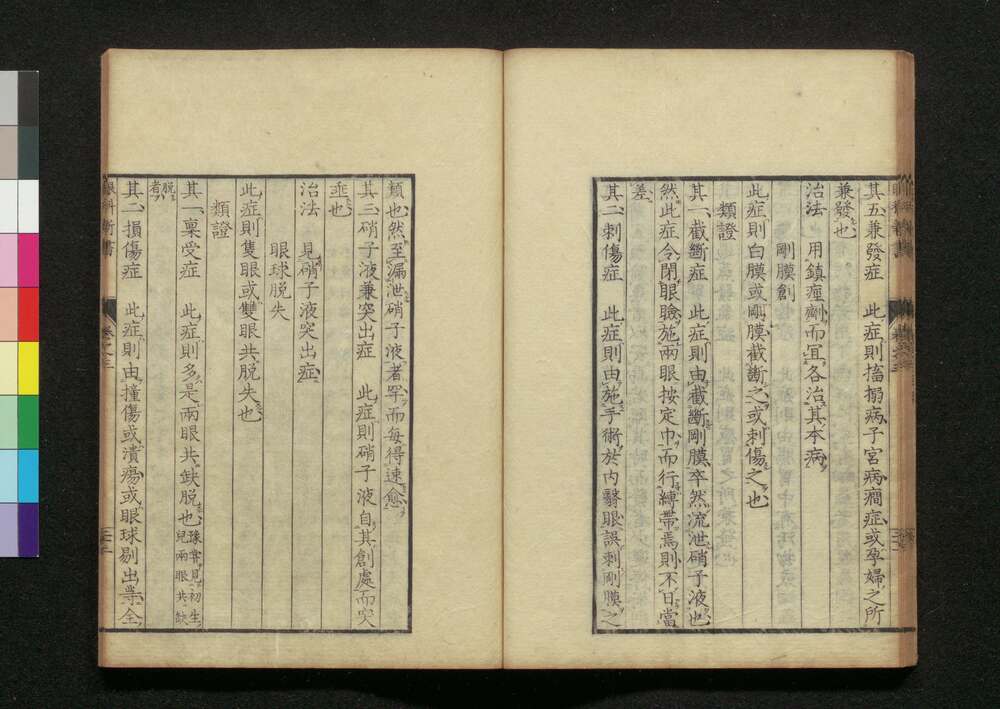 其五兼發症　此症則搐搦病子宮病癇症或孕婦之所
兼發也
治法　用鎮痙劑而宜各治其本病
剛膜創
此症則白膜或剛膜截斷之或刺傷之也
類證
其一截斷症　此症則由截斷剛膜卒然流泄硝子液也
然此症令閉眼瞼施兩眼按定巾而行縛帶焉則不日當
差
其二刺傷症　此症則由施手術於内翳眼誤刺剛膜之
類也然至漏泄硝子液者罕而每得速愈
其三硝子液兼突出症　此症則硝子液自其創處而突
出也
治法　見硝子液突出症
眼球脱失
此症則隻眼或雙眼共脱失也
類證
其一稟受症　此症則多是兩眼共缺脱也豫嘗見初生
兒兩眼共缺
脱者
其二損傷症　此症則由撞傷或潰瘍或眼球剔出等全
眼科新書